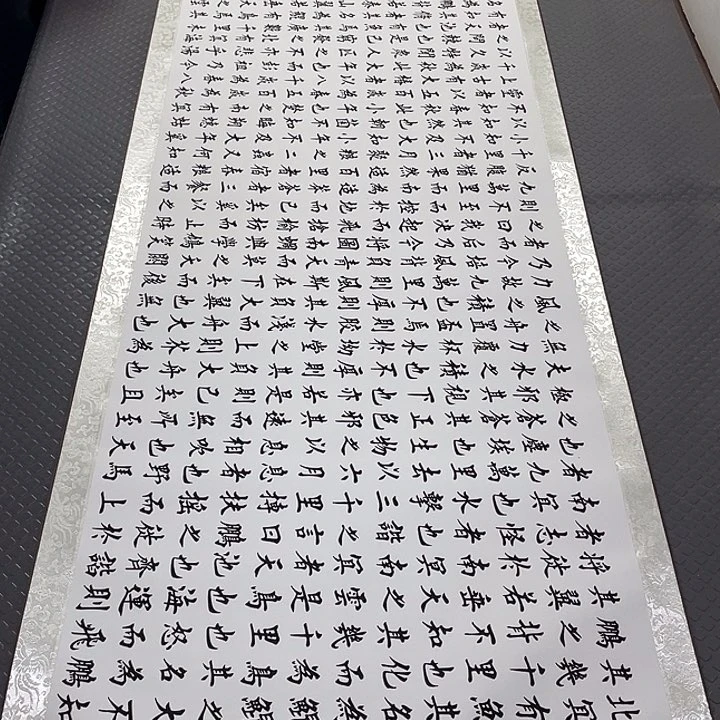 北冥有魚其名為鯤鯤之大不知
其幾千里也化而為鳥其名為鵬
鵬之背不知其幾千里也怒而飛
其翼若垂天之雲是鳥也海運則
將徙於南冥南冥者天池也齊諧
者志怪者也諧之言曰鵬之徙於
南冥也水擊三千里摶扶搖而上
者九萬里去以六月息者也野馬
也塵埃也生物之以息相吹也天
之蒼蒼其正色邪其遠而無所至
極邪其視下也亦若是則已矣且
夫水之積也不厚則其負大舟也
無力覆杯水於坳堂之上則芥為
之舟置杯焉則膠水淺而舟大也
風之積也不厚則其負大翼也無
力故九萬里則風斯在下矣而後
乃今培風背負青天而莫之夭閼
者而後乃今將圖南蜩與學鳩笑
之曰我決起而飛搶榆枋而止時
則不至而控於地而已矣奚以之
九萬里而南為適莽蒼者三餐而
反腹猶果然適百里者宿舂糧適
千里者三月聚糧之二蟲又何知
小知不及大知小年不及大年奚
以知其然也朝菌不知晦朔蟪蛄
不知春秋此小年也楚之南有冥
靈者以五百歲為春五百歲為秋
上古有大椿者以八千歲為春八
千歲為秋此大年也而彭祖乃今
以久特聞眾人匹之不亦悲乎湯
之問棘也是已窮髮之北有冥海
者天池也有魚焉其廣數千里未
有知其修者其名為鯤有鳥焉其